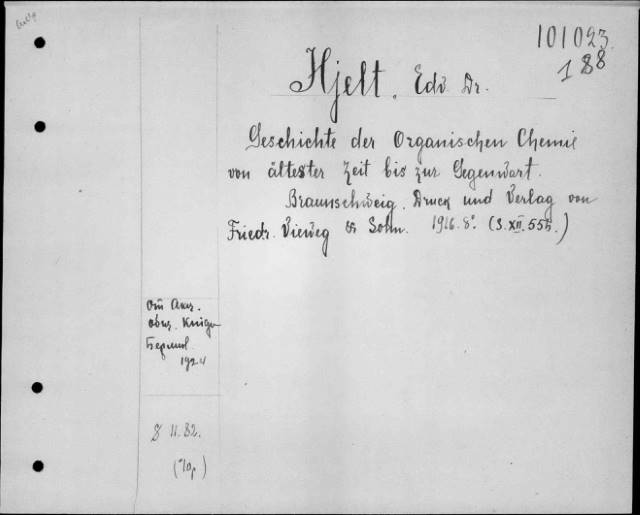 101023
188
Hjelt, Edv. Dr.
Geschichte der Organischen Chemie
von ältester Zeit bis zur Gegenwart.
Braunschweig. Druck und Verlag von
Friedr. Vieweg & Sohn. 1916. 8°. (S. XII. 555.)
От Акц.
общ. Книга
Берлин.
1924
8 11.82.